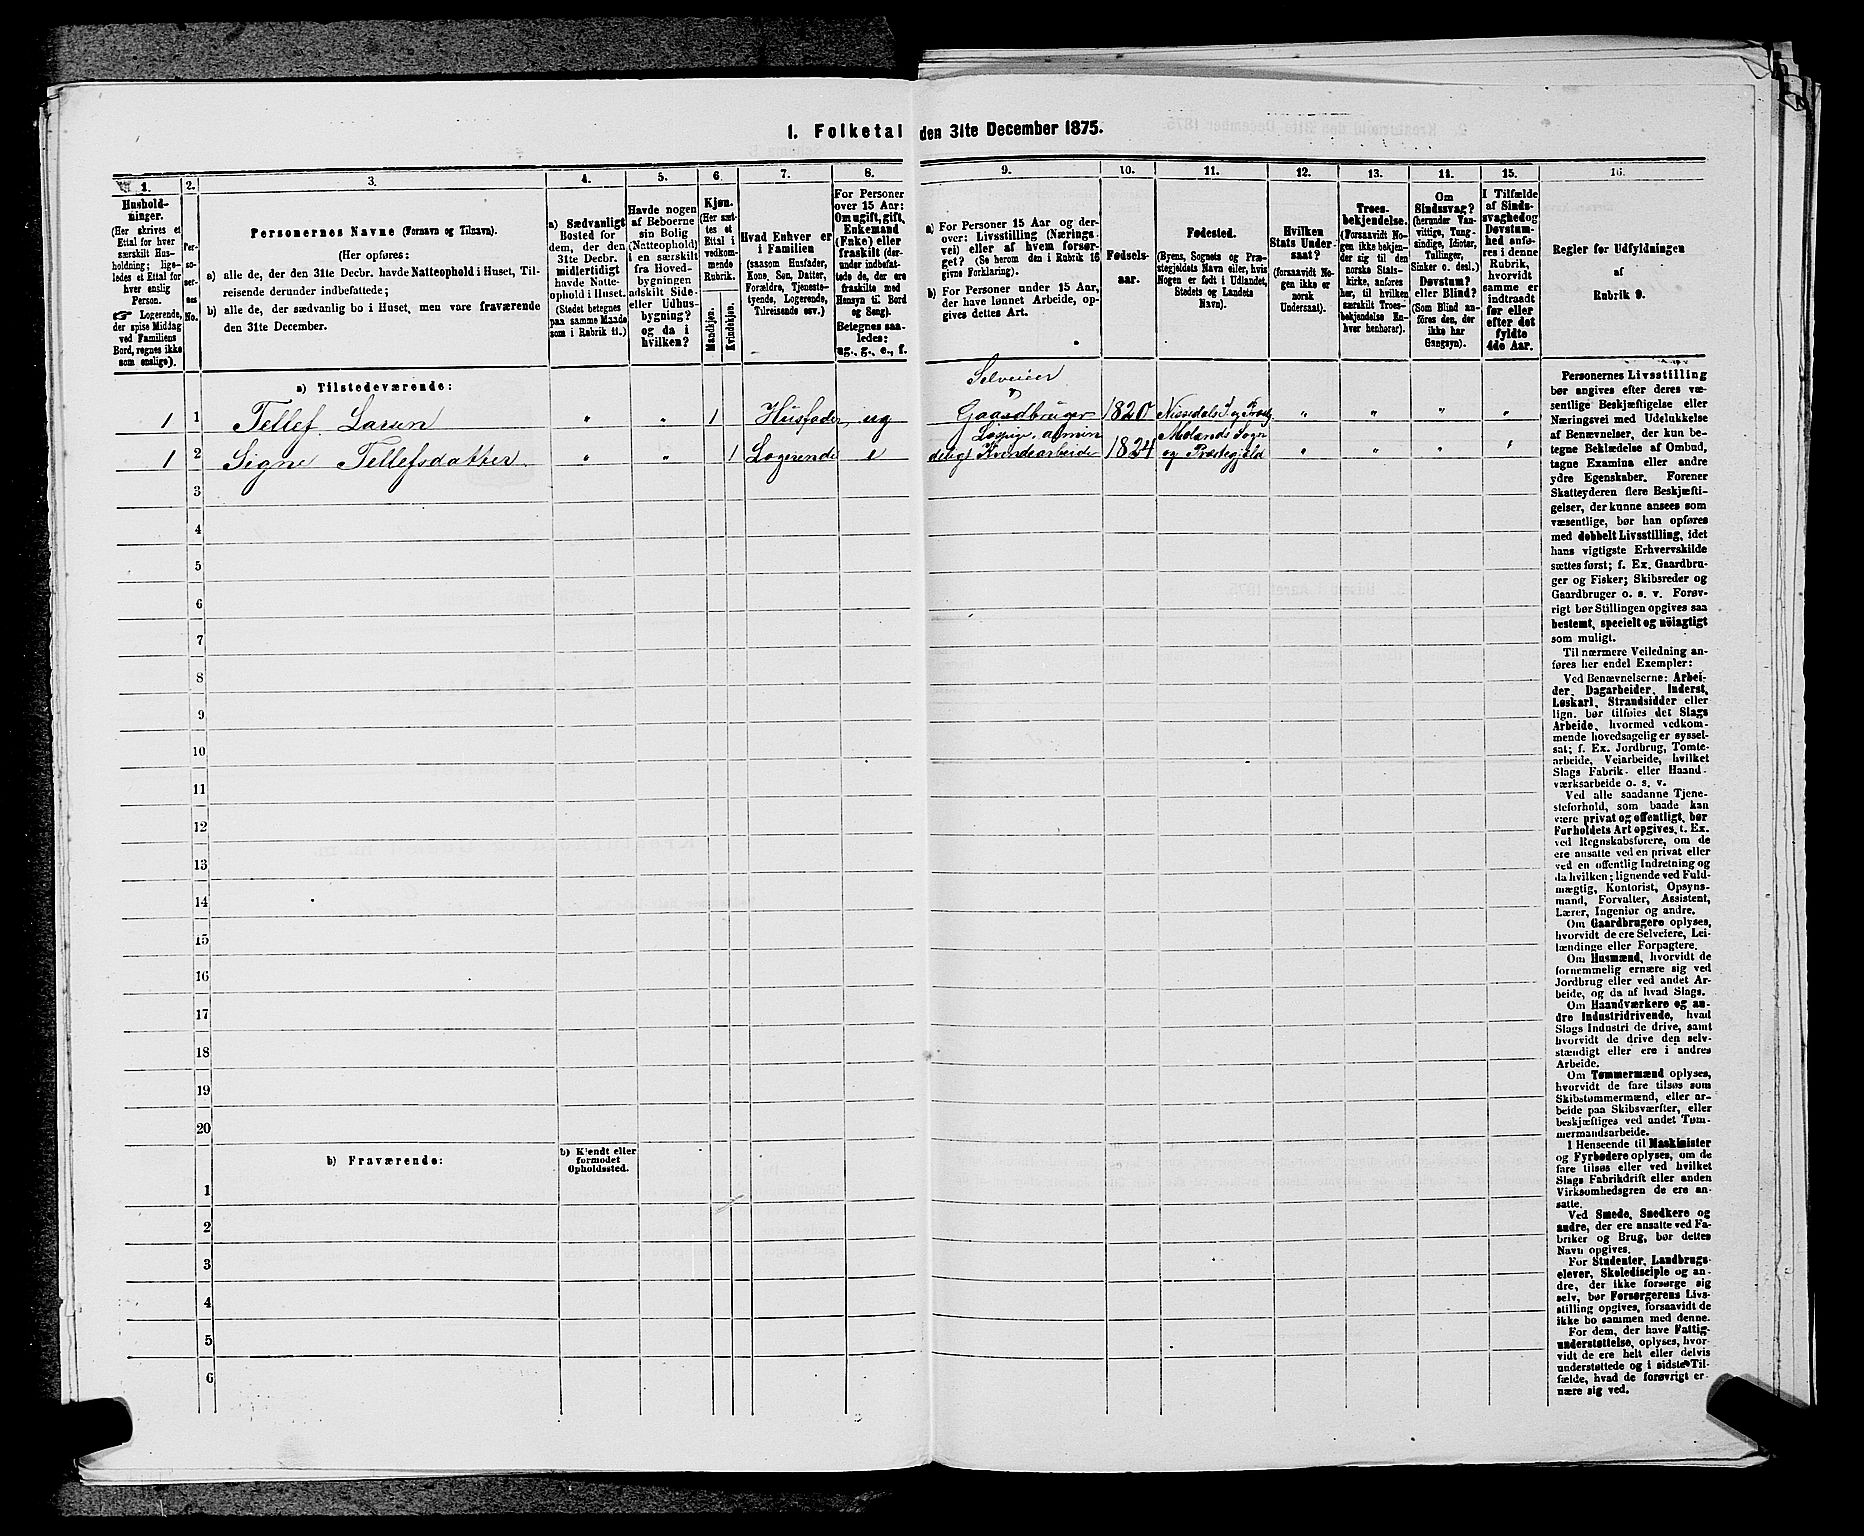 1. Folketal den 31te December 1875.
1.
Hushold-
ninger.
(Her skrives et
Ettal for hver
særskilt Hus-
holdning; lige-
ledes et Ettal for
hver enslig
Person.
☞ Logerende,
der spise Middag
ved Familiens
Bord, regnes ikke
som enslige).
2.
Per-
so-
ner-
nes
No.
3.
Personernes Navne (Fornavn og Tilnavn).
(Her opføres:
a) alle de, der den 31te Decbr. havde Natteophold i Huset, Til-
reisende derunder indbefattede;
b) alle de, der sædvanlig bo i Huset, men vare fraværende
den 31te December.
4.
a) Sædvanligt
Bosted for
dem, der den
31te Decbr.
midlertidigt
havde Natte-
ophold i Huset.
(Stedet betegnes
paa samme Maade
som i Rubrik 11.)
5.
Havde nogen
af Beboerne
sin Bolig
(Natteophold)
i en særskilt
fra Hoved-
bygningen
adskilt Side-
eller Udhus-
bygning?
og da i
hvilken?
6.
Kjøn.
(Her sæt-
tes et
Ettal i
vedkom-
mende
Rubrik.
Mandkjøn.
Kvindekjøn.
7.
Hvad Enhver er
i Familien
(saasom Husfader,
Kone, Søn, Datter,
Forældre, Tjeneste-
tyende, Logerende,
Tilreisende osv.)
8.
For Personer
over 15 Aar:
Om ugift, gift,
Enkemand
(Enke) eller
fraskilt (der-
under indbefat-
tede de, der ere
fraskilte med
Hensyn til Bord
og Seng).
Betegnes saa-
ledes:
ug., g., e., f.
9.
a) For Personer 15 Aar og der-
over: Livsstilling (Nærings-
vei) eller af hvem forsør-
get? (Se herom den i Rubrik 16
givne Forklaring).
b) For Personer under 15 Aar,
der have lønnet Arbeide, op-
gives dettes Art.
10.
Fødsels-
aar.
11.
Fødested.
(Byens, Sognets og Præ-
stegjeldets Navn eller, hvis
Nogen er født i Udlandet,
Stedets og Landets
Navn).
12.
Hvilken
Stats Under-
saat?
(forsaavidt No-
gen ikke er
norsk
Undersaat).
13.
Troes-
bekjendelse.
(Forsaavidt No-
gen ikke bekjen-
der sig til den
norske Stats-
kirke, anføres
her, til hvilken
særskilt Troes-
bekjendelse En-
hver henhører).
14.
Om
Sindssvag?
(herunder Van-
vittige, Tung-
sindige, Idioter,
Tullinger,
Sinker o. desl.)
Døvstum?
eller Blind?
(Som Blind an-
føres den, der
ikke har
Gangsyn).
15.
I Tilfælde
af Sinds-
svaghed og
Døvstum-
hed anfø-
res i denne
Rubrik,
hvorvidt
samme er
indtraadt
før eller
efter det
fyldte
4de Aar.
16.
Regler for Udfyldningen
af
Rubrik 9.
a) Tilstedeværende:
Selveier
1 1 Tellef Larsen " " 1 Husfader ug Gaardbruger 1820 Nissedals S. og Præstg. " " " "
Løspige. almin Molands Sogn
1 2 Signe Tellefsdatter " " 1 Logerende e deligt Kvindearbeide 1824 og Præstegjeld " " " "
3
4
5
6
7
8
9
10
11
12
13
14
15
16
17
18
19
20
b) Fraværende:
b) Kjendt eller
formodet
Opholdssted.
1
2
3
4
5
6
Personernes Livsstilling
bør angives efter deres væ-
sentlige Beskjæftigelse eller
Næringsvei med Udelukkelse
af Benævnelser, der kun be-
tegne Beklædelse af Ombud,
tagne Examina eller andre
ydre Egenskaber. Forener
Skatteyderen flere Beskjæfti-
gelser, der kunne ansees som
væsentlige, bør han opføres
med dobbelt Livsstilling, idet
hans vigtigste Erhvervskilde
sættes først; f. Ex. Gaardbru-
ger og Fisker; Skibsreder og
Gaardbruger o. s. v. Forøv-
rigt bør Stillingen opgives saa
bestemt, specielt og nöiagtigt
som muligt.
Til nærmere Veiledning an-
føres her endel Exempler:
Ved Benævnelserne: Arbei-
der, Dagarbeider, Inderst,
Løskarl, Strandsidder eller
lign. bør tilføies det Slags
Arbeide, hvormed vedkom-
mende hovedsagelig er syssel-
sat; f. Ex. Jordbrug, Tomte-
arbeide, Veiarbeide, hvilket
Slags Fabrik- eller Haand-
værksarbeide o. s. v.
Ved alle saadanne Tjene-
steforhold, som baade kan
være privat og offentligt, bør
Forholdets Art opgives, t. Ex.
ved Regnskabsførere, om de
ere ansatte ved en privat eller
ved en offentlig Indretning og
da hvilken; lignende ved Fuld-
mægtig, Kontorist, Opsyns-
mand, Forvalter, Assistent,
Lærer, Ingeniør og andre.
Om Gaardbrugere oplyses,
hvorvidt de ere Selveiere, Lei-
lændinge eller Forpagtere.
Om Husmænd, hvorvidt de
fornemmelig ernære sig ved
Jordbrug eller ved andet Ar-
beide, og da af hvad Slags.
Om Haandværkere og an-
dre Industridrivende, hvad
Slags Industri de drive, samt
hvorvidt de drive den selv-
stændigt eller ere i andres
Arbeide.
Om Tømmermænd oplyses,
hvorvidt de fare tilsøs som
Skibstømmermænd, eller ar-
beide paa Skibsværfter, eller
beskjæftiges ved andet Tøm-
mermandsarbeide.
I Henseende til Maskinister
og Fyrbødere oplyses, om de
fare tilsøs eller ved hvilket
Slags Fabrikdrift eller anden
Virksomhedsgren de ere an-
satte.
Ved Smede, Snedkere og
andre, der ere ansatte ved Fa-
briker og Brug, bør dettes
Navn opgives.
For Studenter, Landbrugs-
elever, Skoledisciple og an-
dre, der ikke forsørge sig
selv, bør Forsørgerens Livs-
stilling opgives, forsaavidt de
ikke bo sammen med denne.
For dem, der have Fattig-
understøttelse, oplyses, hvor-
vidt de ere helt eller delvis
understøttede og i sidste Til-
fælde, hvad de forøvrigt er-
nære sig ved.